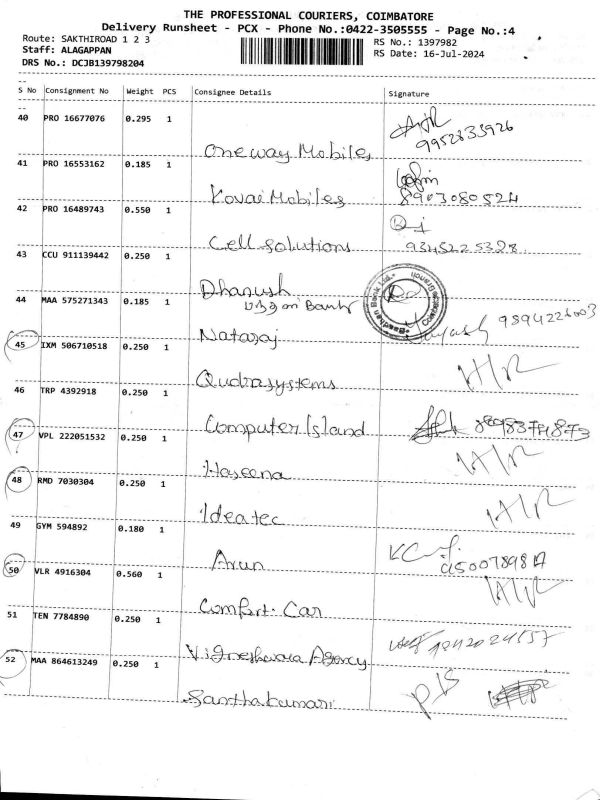 THE PROFESSIONAL COURIERS, COIMBATORE
Delivery Runsheet - PCX - Phone No.:0422-3505555 - Page No.:4
Route: SAKTHIROAD 1 2 3
Staff: ALAGAPPAN
DRS No.: DCJB139798204
RS No.: 1397982
RS Date: 16-Jul-2024
S No Consignment No Weight PCS Consignee Details Signature
40 PRO 16677076 0.295 1
Oneway Mobiles 9952833926
41 PRO 16553162 0.185 1
Kovai Mobiles 8903080524
42 PRO 16489743 0.550 1
Cell Solutions 9345225328
43 CCU 911139442 0.250 1
Dhanush
44 MAA 575271343 0.185 1
Nataraj 9894226003
45 IXM 506710518 0.250 1
Qudrasystems
46 TRP 4392918 0.250 1
Computer Island
47 VPL 222051532 0.250 1
Haseena
48 RMD 7030304 0.250 1
Ideatec
49 GYM 594892 0.180 1
Arun
50 VLR 4916304 0.560 1
Comfort Car
51 TEN 7784890 0.250 1
Vigneshwara Agency
52 MAA 864613249 0.250 1
Santhakumari